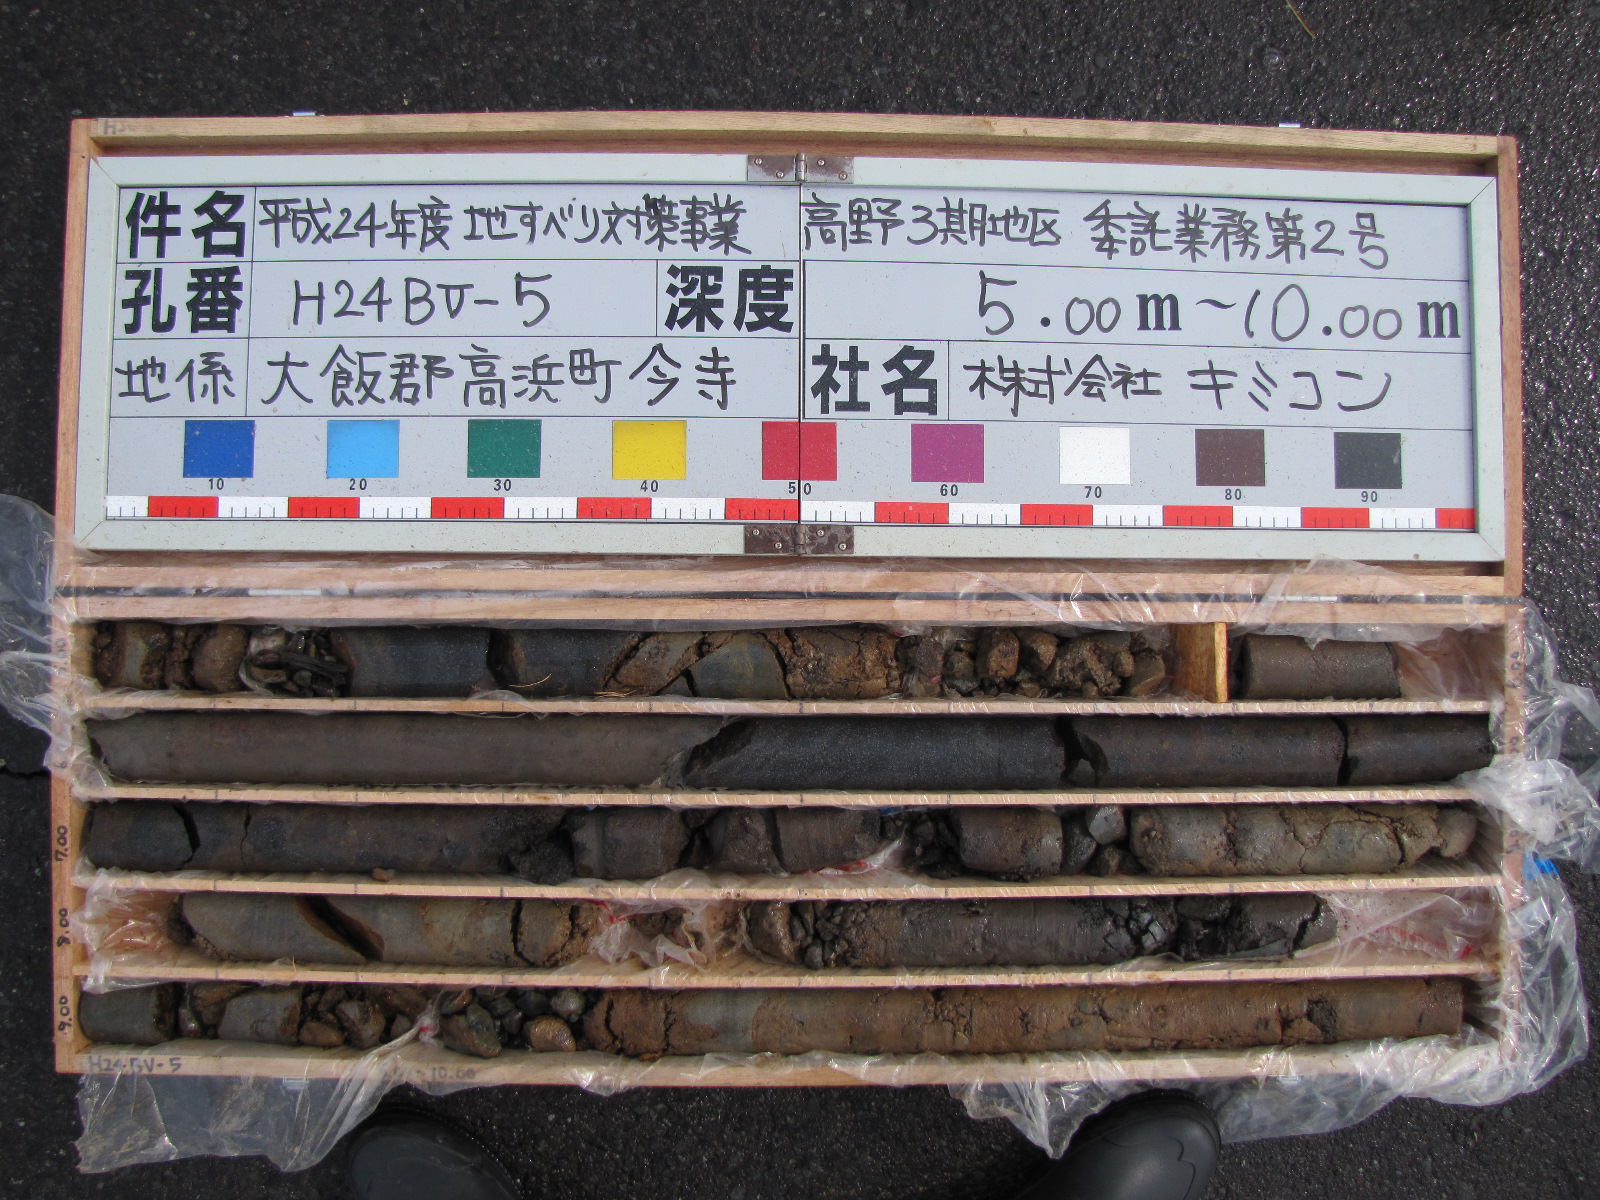 件名 平成24年度 地すべり対策事業 高野3期地区 委託業務第2号
孔番 H24BV-5 深度 5.00m~10.00m
地係 大飯郡高浜町今寺 社名 株式会社 キミコン
10 20 30 40 50 60 70 80 90
7.00
8.00
9.00
H24BV-5
10.00